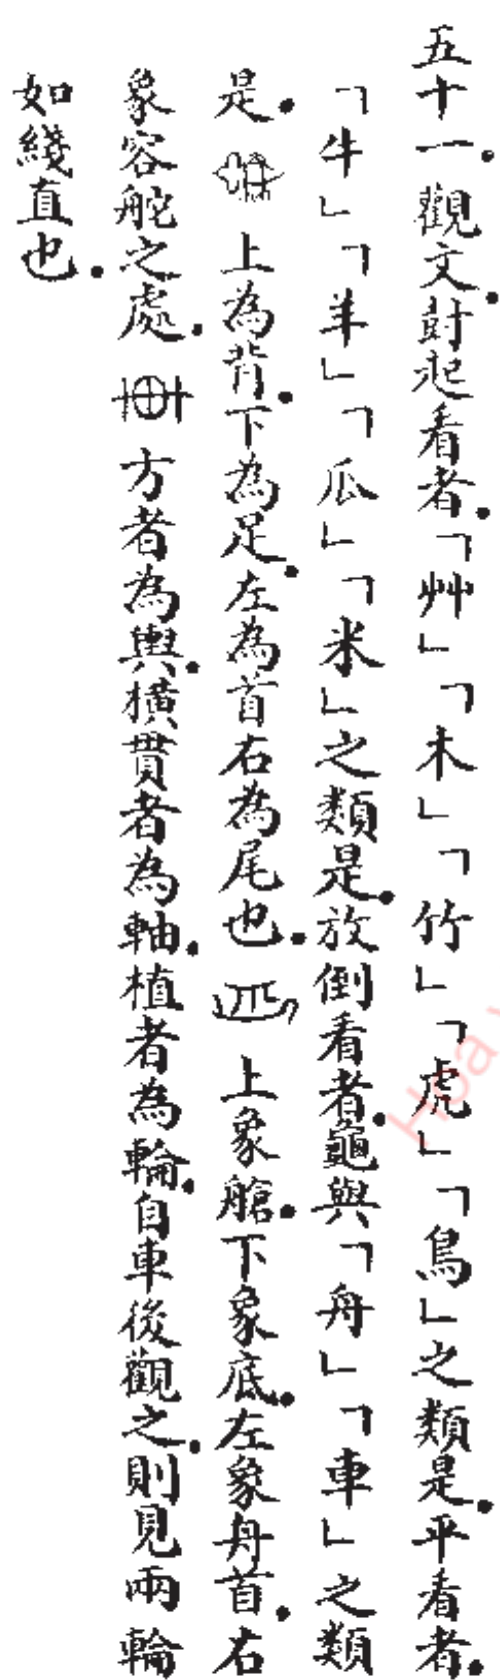 五十一。觀文。封起看者。「艸」「木」「竹」「虎」「鳥」之類是。平看者。
「牛」「羊」「瓜」「米」之類是。放倒看者。龜與「舟」「車」之類
是。上為背。下為足。左為首右為尾也。上象艙。下象底。左象舟首。右
象容舵之處。方者為輿。橫貫者為軸。植者為輪。自車後觀之。則見兩輪
如綫直也。
Hoa